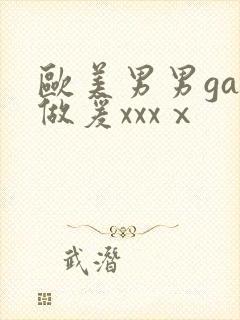 歐美男男ga
做爰xxxⅹ
武潛